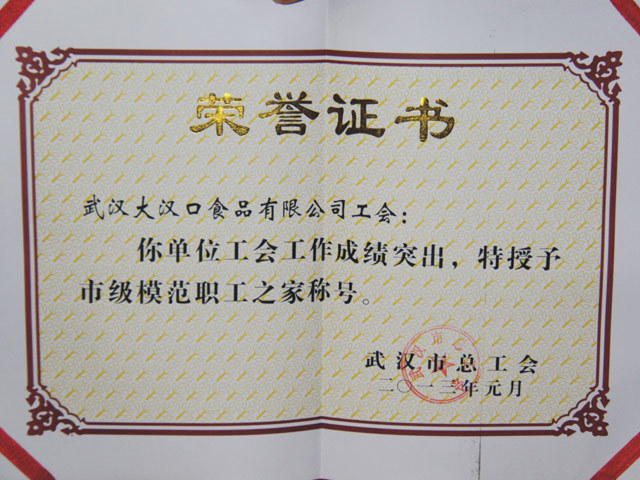 荣誉证书
武汉大汉口食品有限公司工会：
你单位工会工作成绩突出，特授予
市级模范职工之家称号。
武汉市总工会
二〇一三年元月